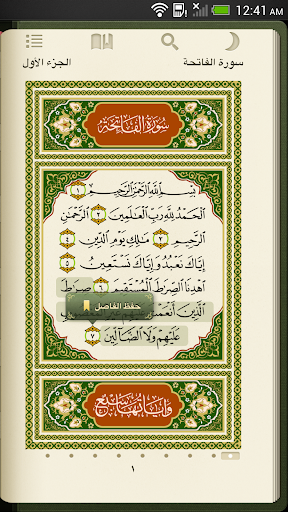 12:41 AM
سورة الفاتحة
الجزء الأول
سورة الفاتحة
بسم الله الرحمن الرحيم ١
الحمد لله رب العالمين ٢ الرحمن
الرحيم ٣ ملك يوم الدين ٤
إياك نعبد وإياك نستعين ٥
اهدنا الصرط المستقيم ٦ صرط
الذين أنعمت
حفظ الفاصل
عليهم ولا الضالين ٧
وآياتها سبع
١